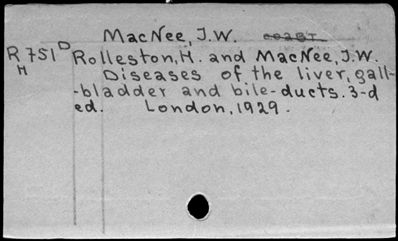 MacNee, J.W.
R751D Rolleston, H. and MacNee, J.W.
H
Diseases of the liver, gall-
-bladder and bile-ducts. 3-d
ed. London, 1929.